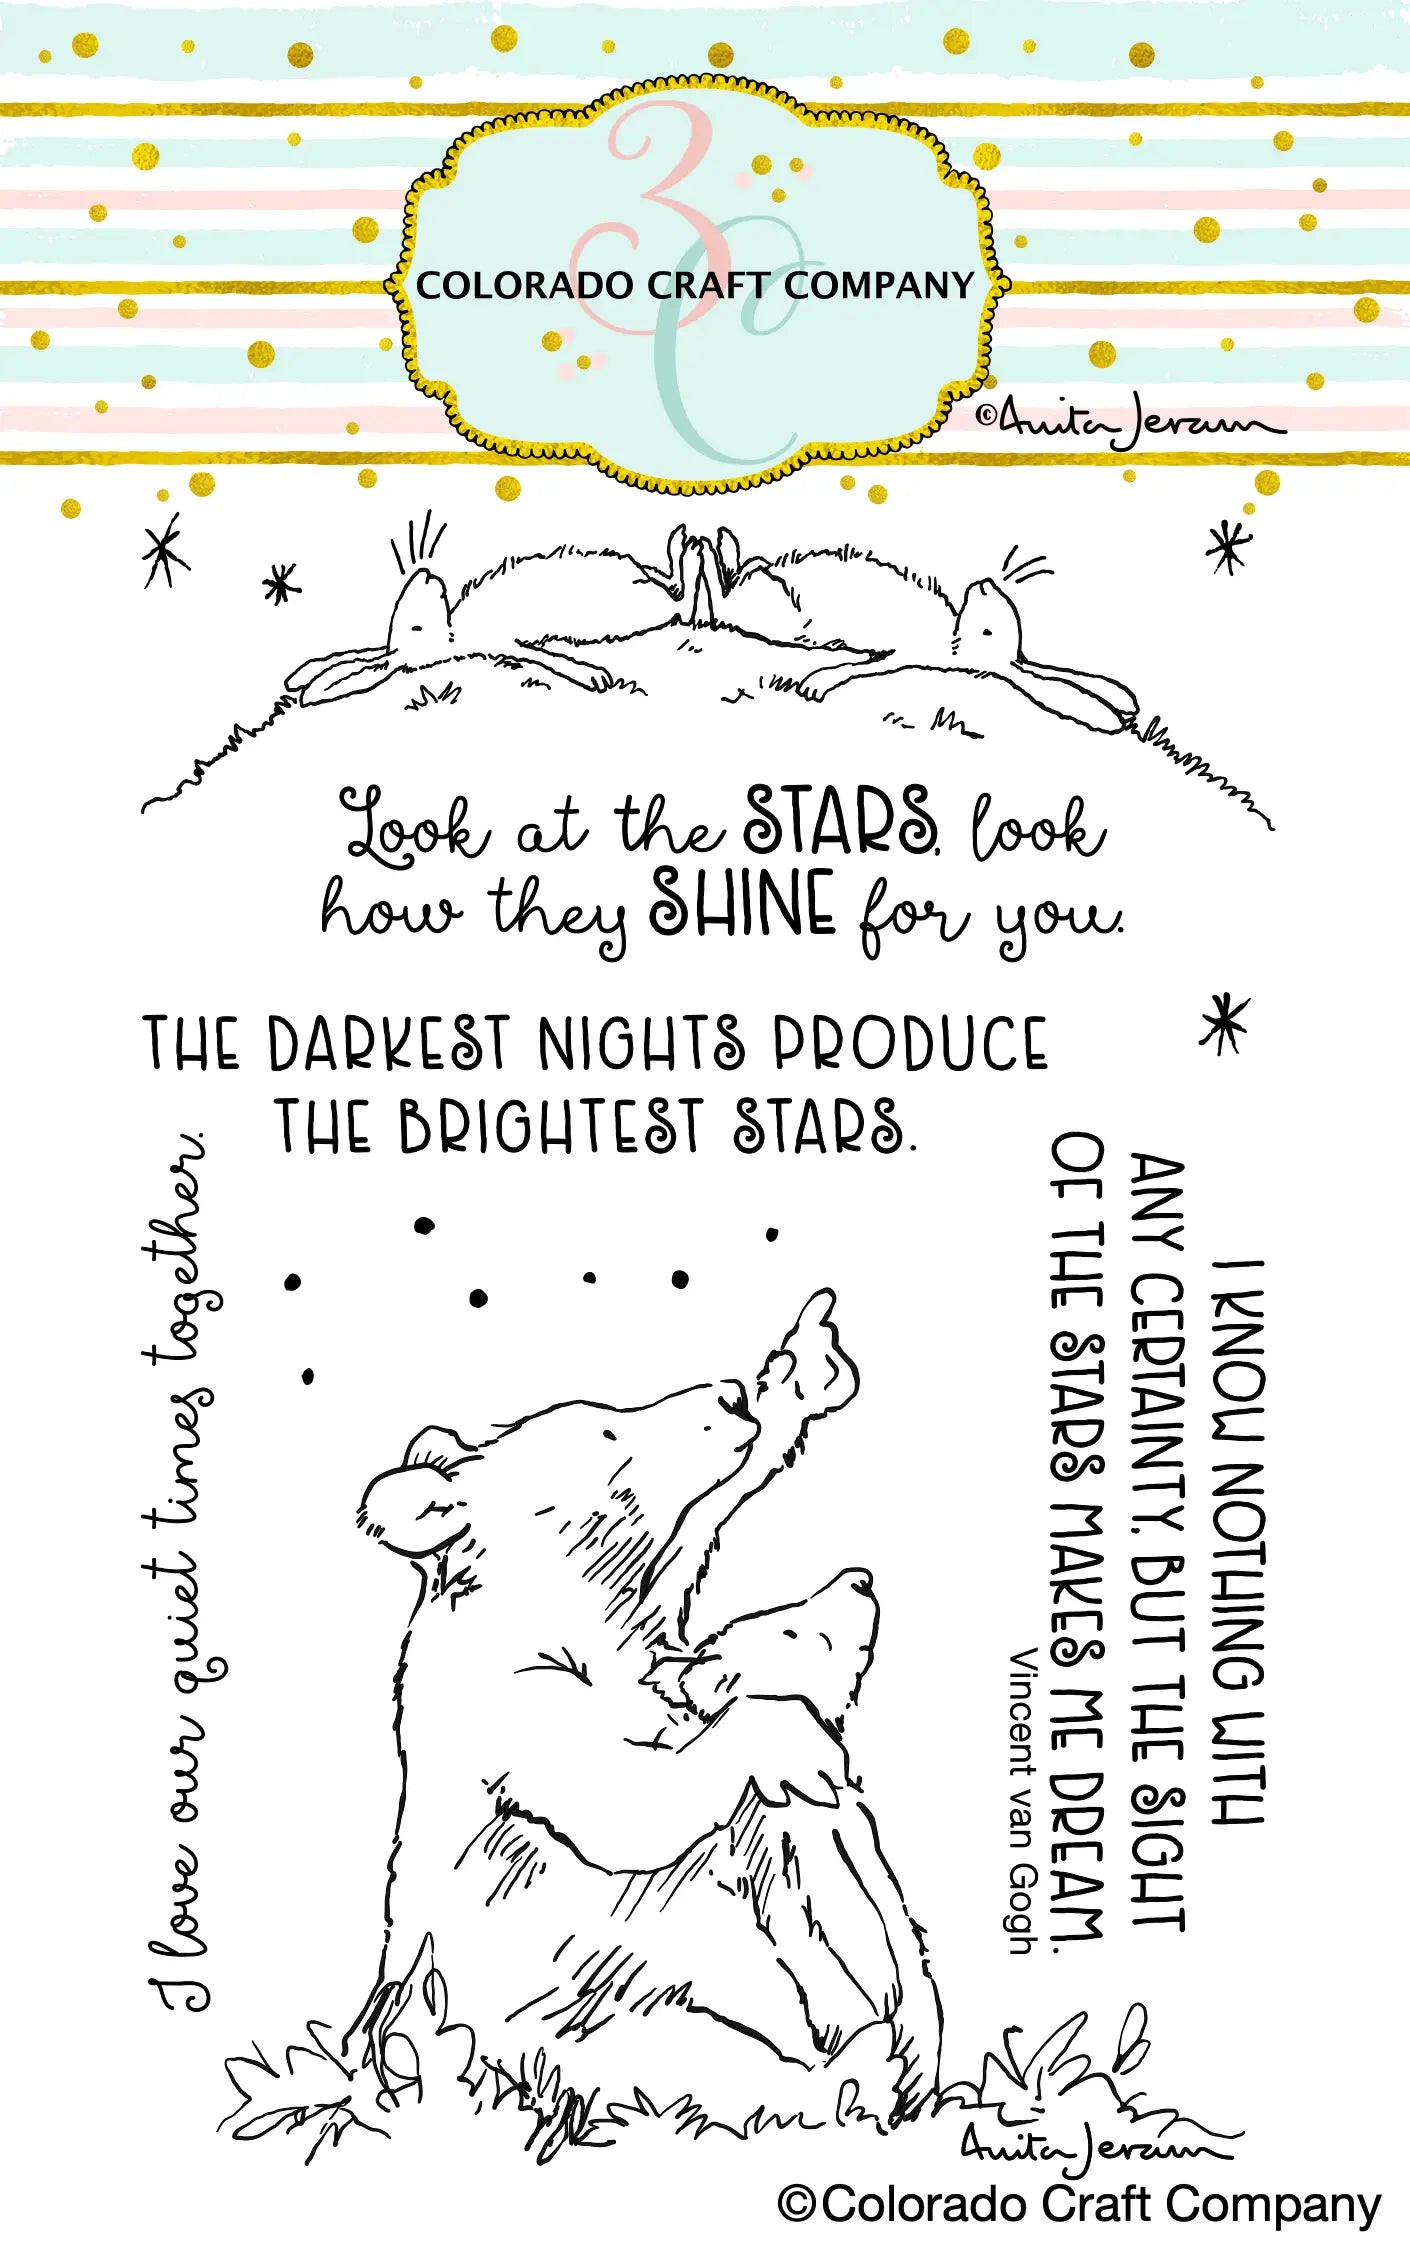 3C
COLORADO CRAFT COMPANY
©Anita Jeram
Look at the STARS, look
how they SHINE for you.
THE DARKEST NIGHTS PRODUCE
THE BRIGHTEST STARS.
I love our quiet times together.
I KNOW NOTHING WITH
ANY CERTAINTY, BUT THE SIGHT
OF THE STARS MAKES ME DREAM.
Vincent van Gogh
Anita Jeram
©Colorado Craft Company